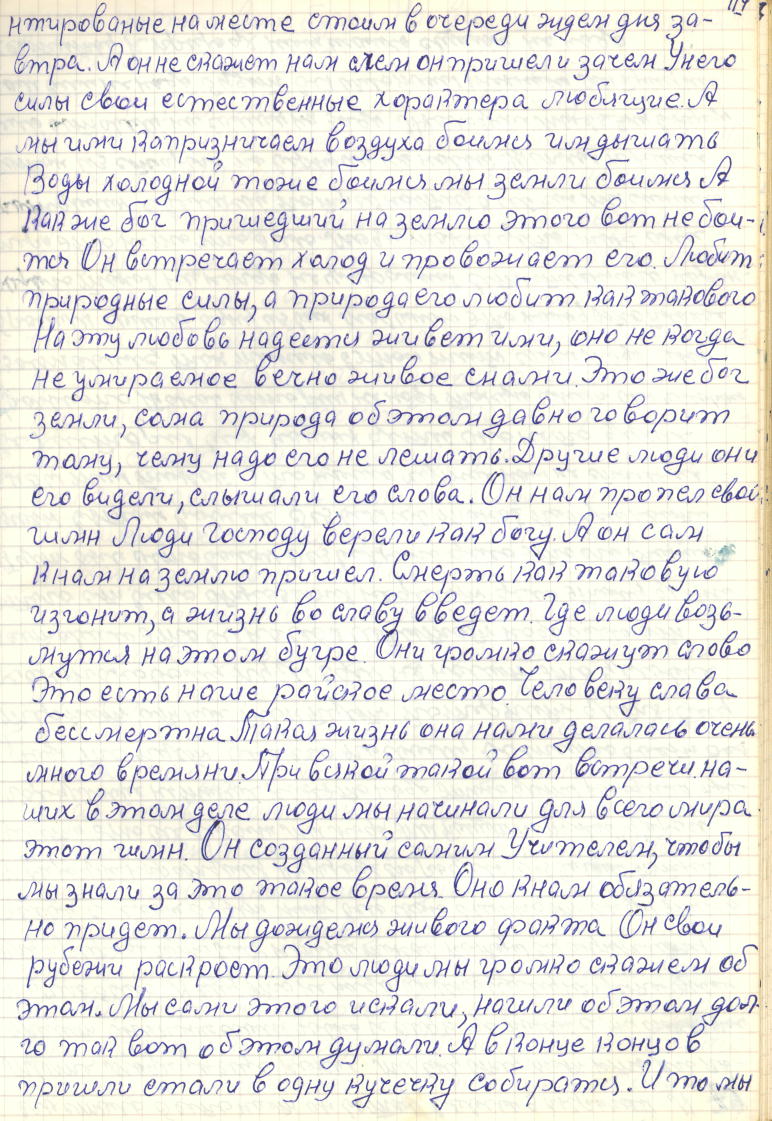 нтированые на месте стоим в очереди ждем дня за-
втра. А он не скажет нам с чем он пришел и зачем У него
силы свои естественные характера любящие. А
мы ими капризничаем воздуха боимся им дышать
Воды холодной тоже боимся мы земли боимся А
как же бог пришедший на землю этого вот не бои-
тся Он встречает холод и провожает его. Любит
природные силы, а природа его любит как такового
На эту любовь надеется живет ими, оно не когда
не умираемое вечно живое с нами. Это же бог
земли, сама природа об этом давно говорит
тому, чему надо его не мешать. Другие люди они
его видели, слышали его слова. Он нам пропел свой
гимн Люди Господу верели как богу. А он сам
к нам на землю пришел. Смерть как таковую
изгонит, а жизнь во славу введет. Где люди возь-
мутся на этом бугре. Они громко скажут слово
Это есть наше райское место Человеку слава
бессмертна Такая жизнь она нами делалась очень
много времяни. При всякой такой вот встречи на-
ших в этом деле люди мы начинали для всего мира
этот гимн. Он созданный самим Учителем, чтобы
мы знали за это такое время. Оно к нам обязатель-
но придет. Мы дождемся живого факта Он свои
рубежи раскрост. Это люди мы громко скажем об
этом. Мы сами этого искали, нашли об этом дол-
го так вот об этом думали. А в конце концов
пришли стали в одну кучечку собиратся. И то мы